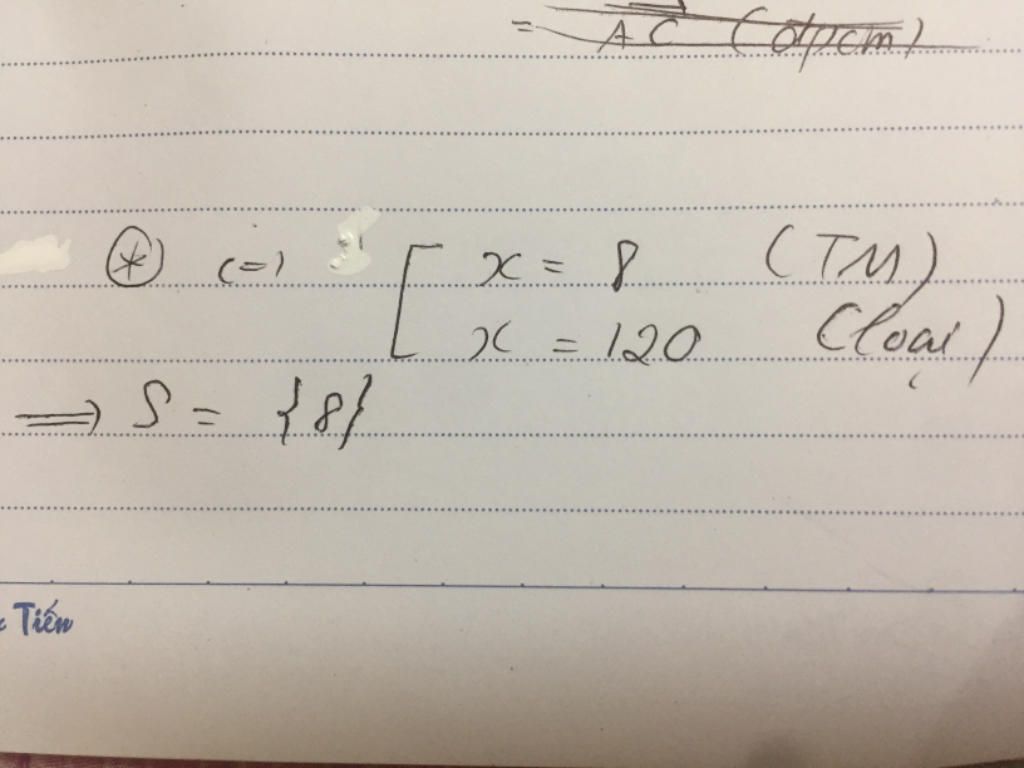 = AC (đpcm)
(*) <=> [ x = 8 (TM)
x = 120 (loại)
=> S = {8}
Tiến